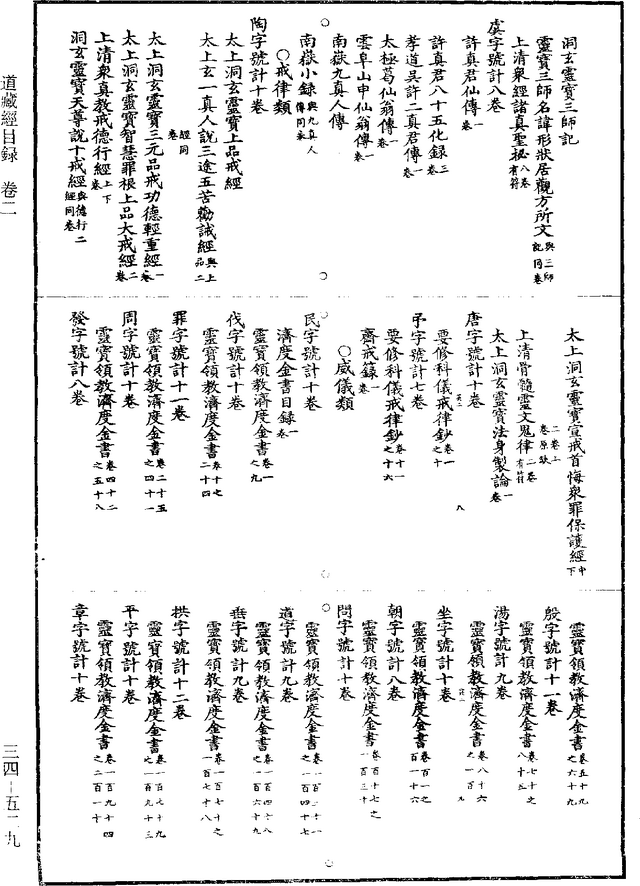 洞玄靈寶三師記
靈寶三師名諱形狀居觀方所文與三師記同卷
上清衆經諸真聖祕八卷有符
虞字號計八卷
許真君仙傳一卷
許真君八十五化錄三卷
孝道吳許二真君傳一卷
太極葛仙翁傳一卷
雲阜山申仙翁傳一卷
南嶽九真人傳
南嶽小錄與九真人傳同卷
○戒律類
陶字號計十卷
太上洞玄靈寶上品戒經
太上玄一真人說三途五苦勸誡經與上品二經同卷
太上洞玄靈寶三元品戒功德輕重經一卷
太上洞玄靈寶智慧罪根上品大戒經二卷
上清衆真教戒德行經上下卷
洞玄靈寶天尊說十戒經與德行二經同卷
太上洞玄靈寶宣戒首悔衆罪保護經中下
二卷上卷原缺
上清骨髓靈文鬼律二卷有符
太上洞玄靈寶法身製論一卷
唐字號計十卷
要修科儀戒律鈔卷一之十
予字號計七卷
要修科儀戒律鈔卷十一之十六
齋戒錄一卷
○威儀類
民字號計十卷
濟度金書目錄一卷
靈寶領教濟度金書卷一之九
伐字號計十卷
靈寶領教濟度金書卷十七之二十四
罪字號計十一卷
靈寶領教濟度金書卷二十五之四十一
周字號計十卷
靈寶領教濟度金書卷四十二之五十八
發字號計八卷
靈寶領教濟度金書卷五十九之六十九
殷字號計十一卷
靈寶領教濟度金書卷七十之八十五
湯字號計九卷
靈寶領教濟度金書卷八十六之一百
坐字號計十卷
靈寶領教濟度金書卷百一之百十六
朝字號計八卷
靈寶領教濟度金書卷百十七之一百三十
問字號計十卷
靈寶領教濟度金書卷一百三十一之一百四十七
道字號計九卷
靈寶領教濟度金書卷一百四十八之一百六十九
垂字號計九卷
靈寶領教濟度金書卷一百七十之一百七十八
拱字號計十二卷
靈寶領教濟度金書卷一百七十九之一百九十三
平字號計十卷
靈寶領教濟度金書卷一百九十四之二百一十
章字號計十卷
道藏經目錄 卷二
三四－五二九